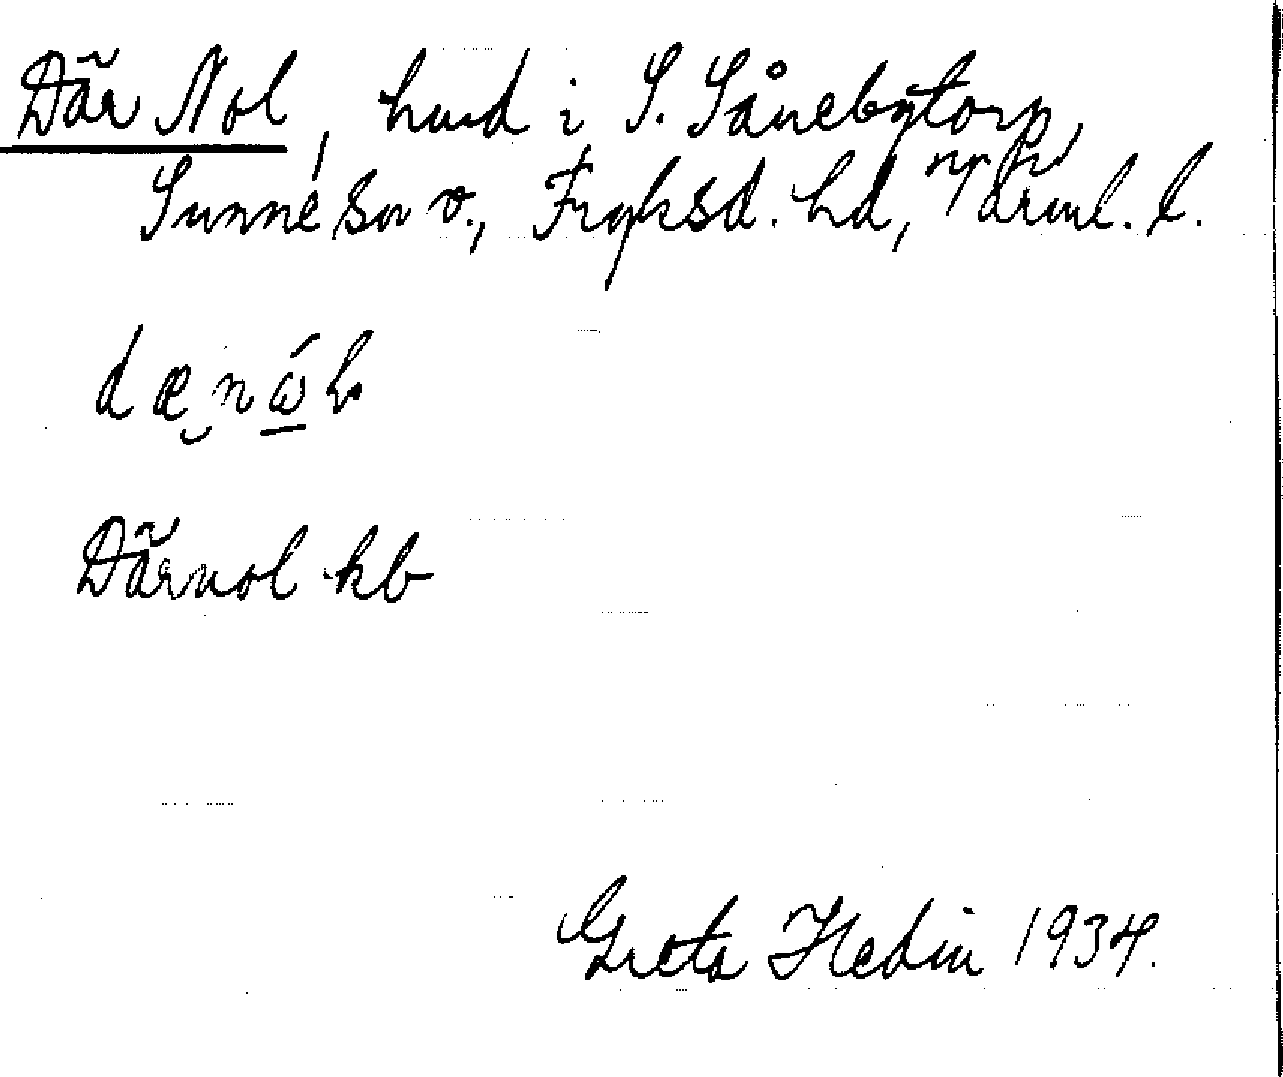 Där Nol, husd i S. Sånebytorp,
Sunne sn v., Fryksd. hd, Värml. l.
Därnol kb
Greta Hedin 1934.